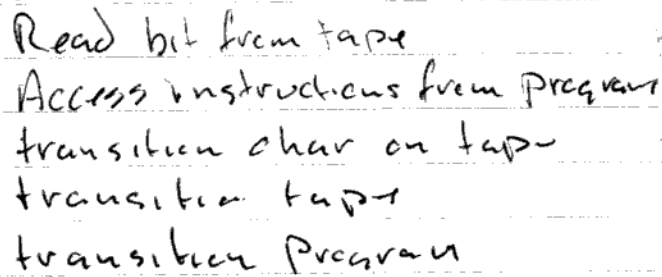 Read bit from tape
Access instructions from program
transition char on tape
transition tape
transition program